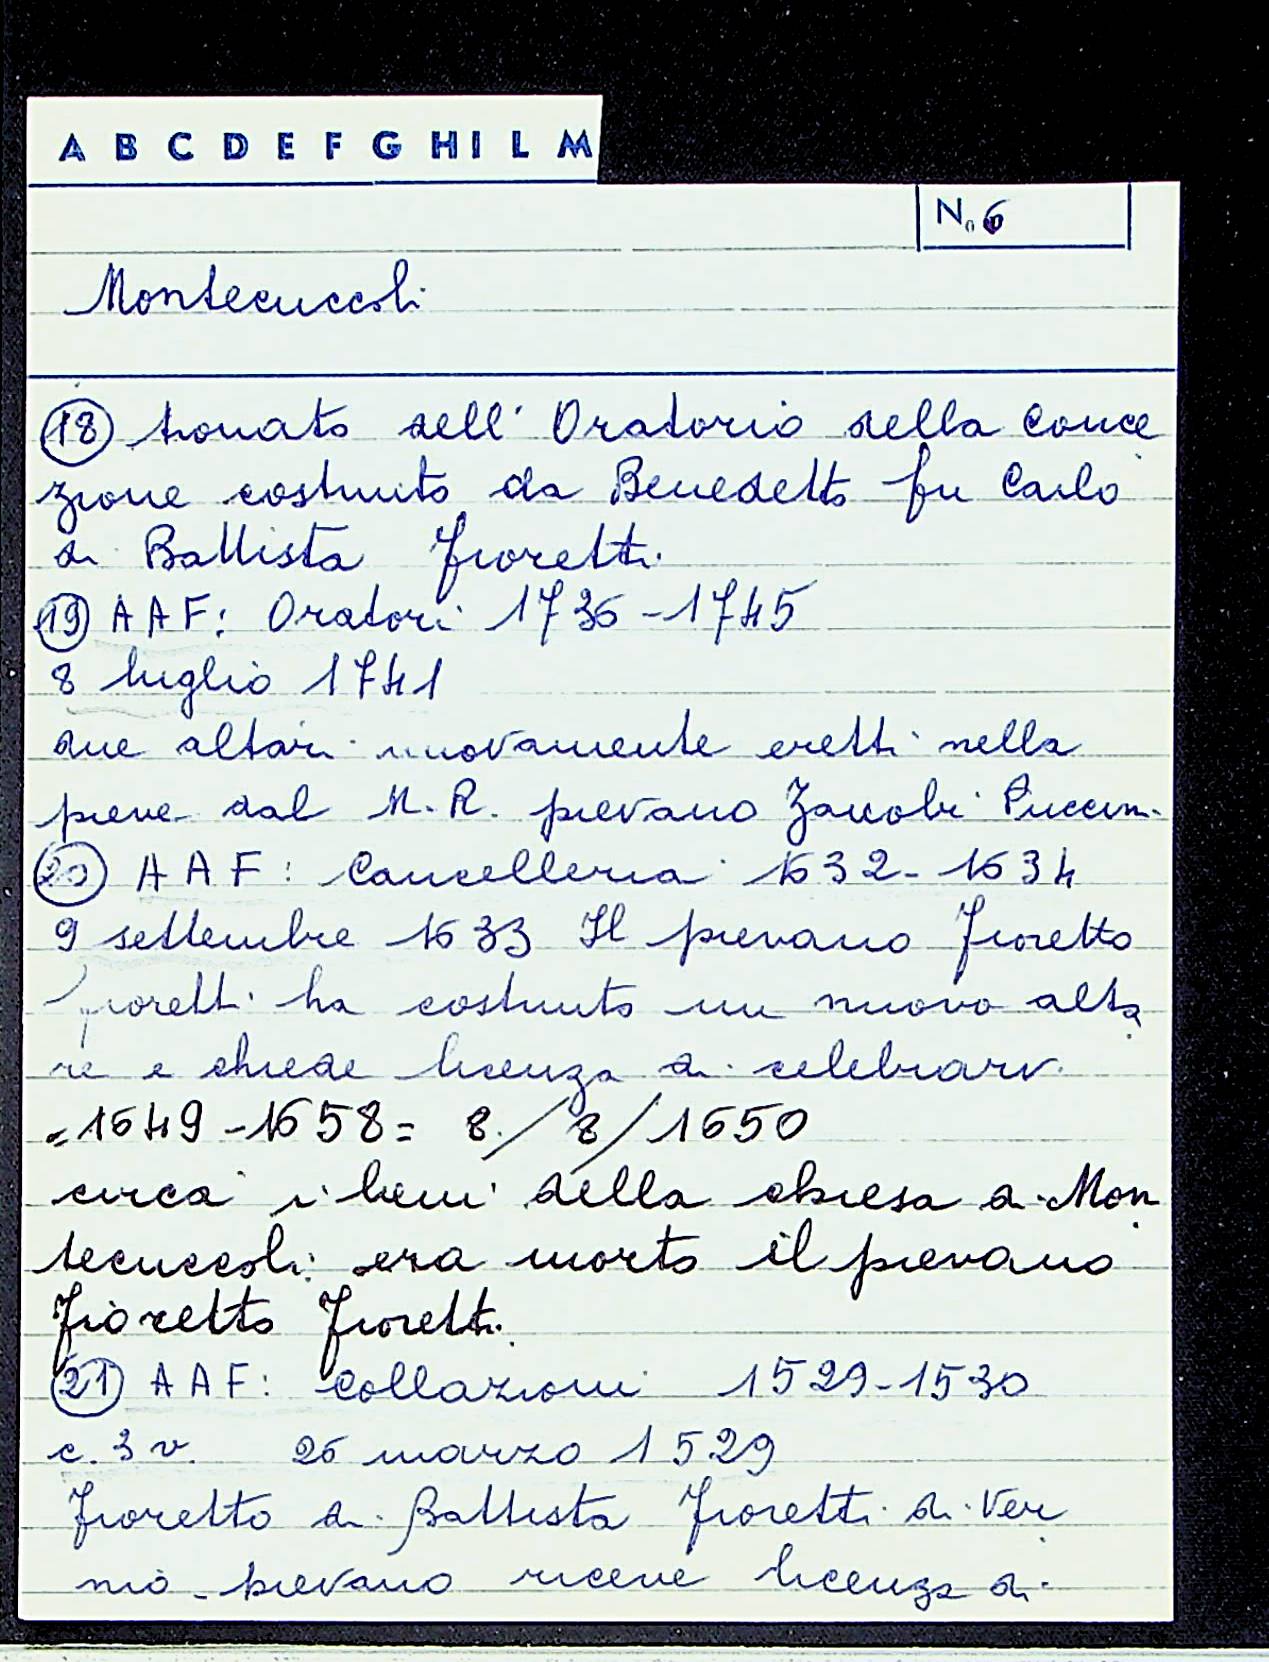 A B C D E F G H I L M
N. 6
Montecuccoli
18 tronato dell' Oratorio della Conce
zione costruito da Benedetto fu Carlo
di Battista Fioretti.
19 AAF: Oratori 1736-1745
8 luglio 1741
due altari nuovamente eretti nella
pieve dal M. R. pievano Jacobi Puccini.
20 AAF: Cancelleria 1632-1634
9 settembre 1633 Il pievano Fioretto
Fioretti ha costruito un nuovo alta
re e chiede licenza di celebrarvi.
=1649-1658= 8/8/1650
circa i beni della chiesa di Mon
tecuccoli: era morto il pievano
Fioretto Fioretti.
21 AAF: Collazioni 1529-1530
c. 3 v. 26 marzo 1529
Fioretto di Battista Fioretti di Ver
nio pievano riceve licenza di